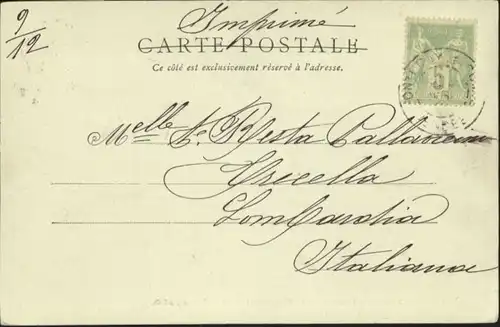 9/12
Imprimé
CARTE POSTALE
Ce côté est exclusivement réservé à l'adresse.
Melle Resta Pallavicini
Lombardia
Italiana